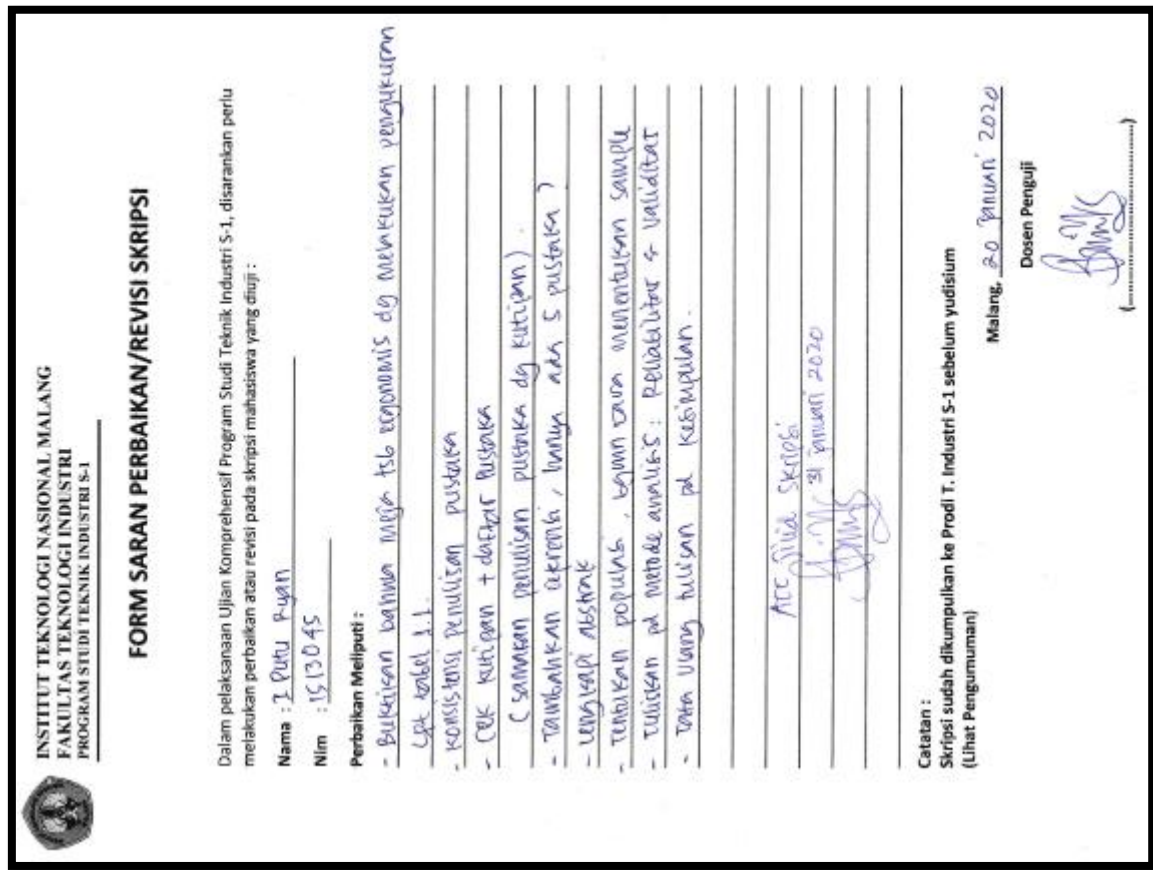 INSTITUT TEKNOLOGI NASIONAL MALANG
FAKULTAS TEKNOLOGI INDUSTRI
PROGRAM STUDI TEKNIK INDUSTRI S-1
FORM SARAN PERBAIKAN/REVISI SKRIPSI
Dalam pelaksanaan Ujian Komprehensif Program Studi Teknik Industri S-1, disarankan perlu
melakukan perbaikan atau revisi pada skripsi mahasiswa yang diuji :
Nama : I Putu Ryan
Nim : 1513045
Perbaikan Meliputi :
- Buktikan bahwa meja tsb ergonomis dg melakukan pengukuran
tabel 1.1.
- Konsistensi penulisan pustaka
- Cek kutipan + daftar pustaka
(samakan penulisan pustaka dg kutipan).
- Tambahkan , hanya ada 5 pustaka)
- Lengkapi abstrak
- Tentukan populasi, bgmn cara menentukan sample
- Tuliskan pd metode analisis : reliabilitas & validitas
- Tata ulang tulisan pd kesimpulan.
ACC Jilid Skripsi
31 januari 2020
Catatan :
Skripsi sudah dikumpulkan ke Prodi T. Industri S-1 sebelum yudisium
(Lihat Pengumuman)
Malang, 20 Januari 2020
Dosen Penguji
(..............................)